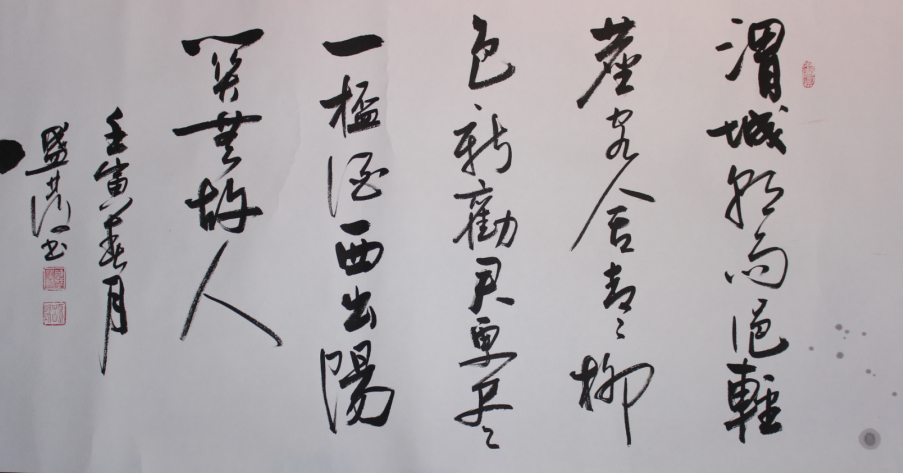 渭城朝雨浥輕
塵客舍青〻柳
色新勸君更尽
一桮酒西出陽
関無故人
壬寅春月
盛书